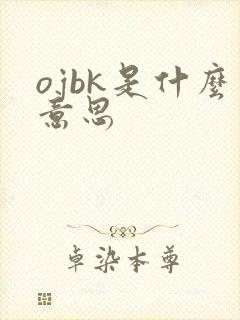 ojbk是什麽
意思
卓染本尊